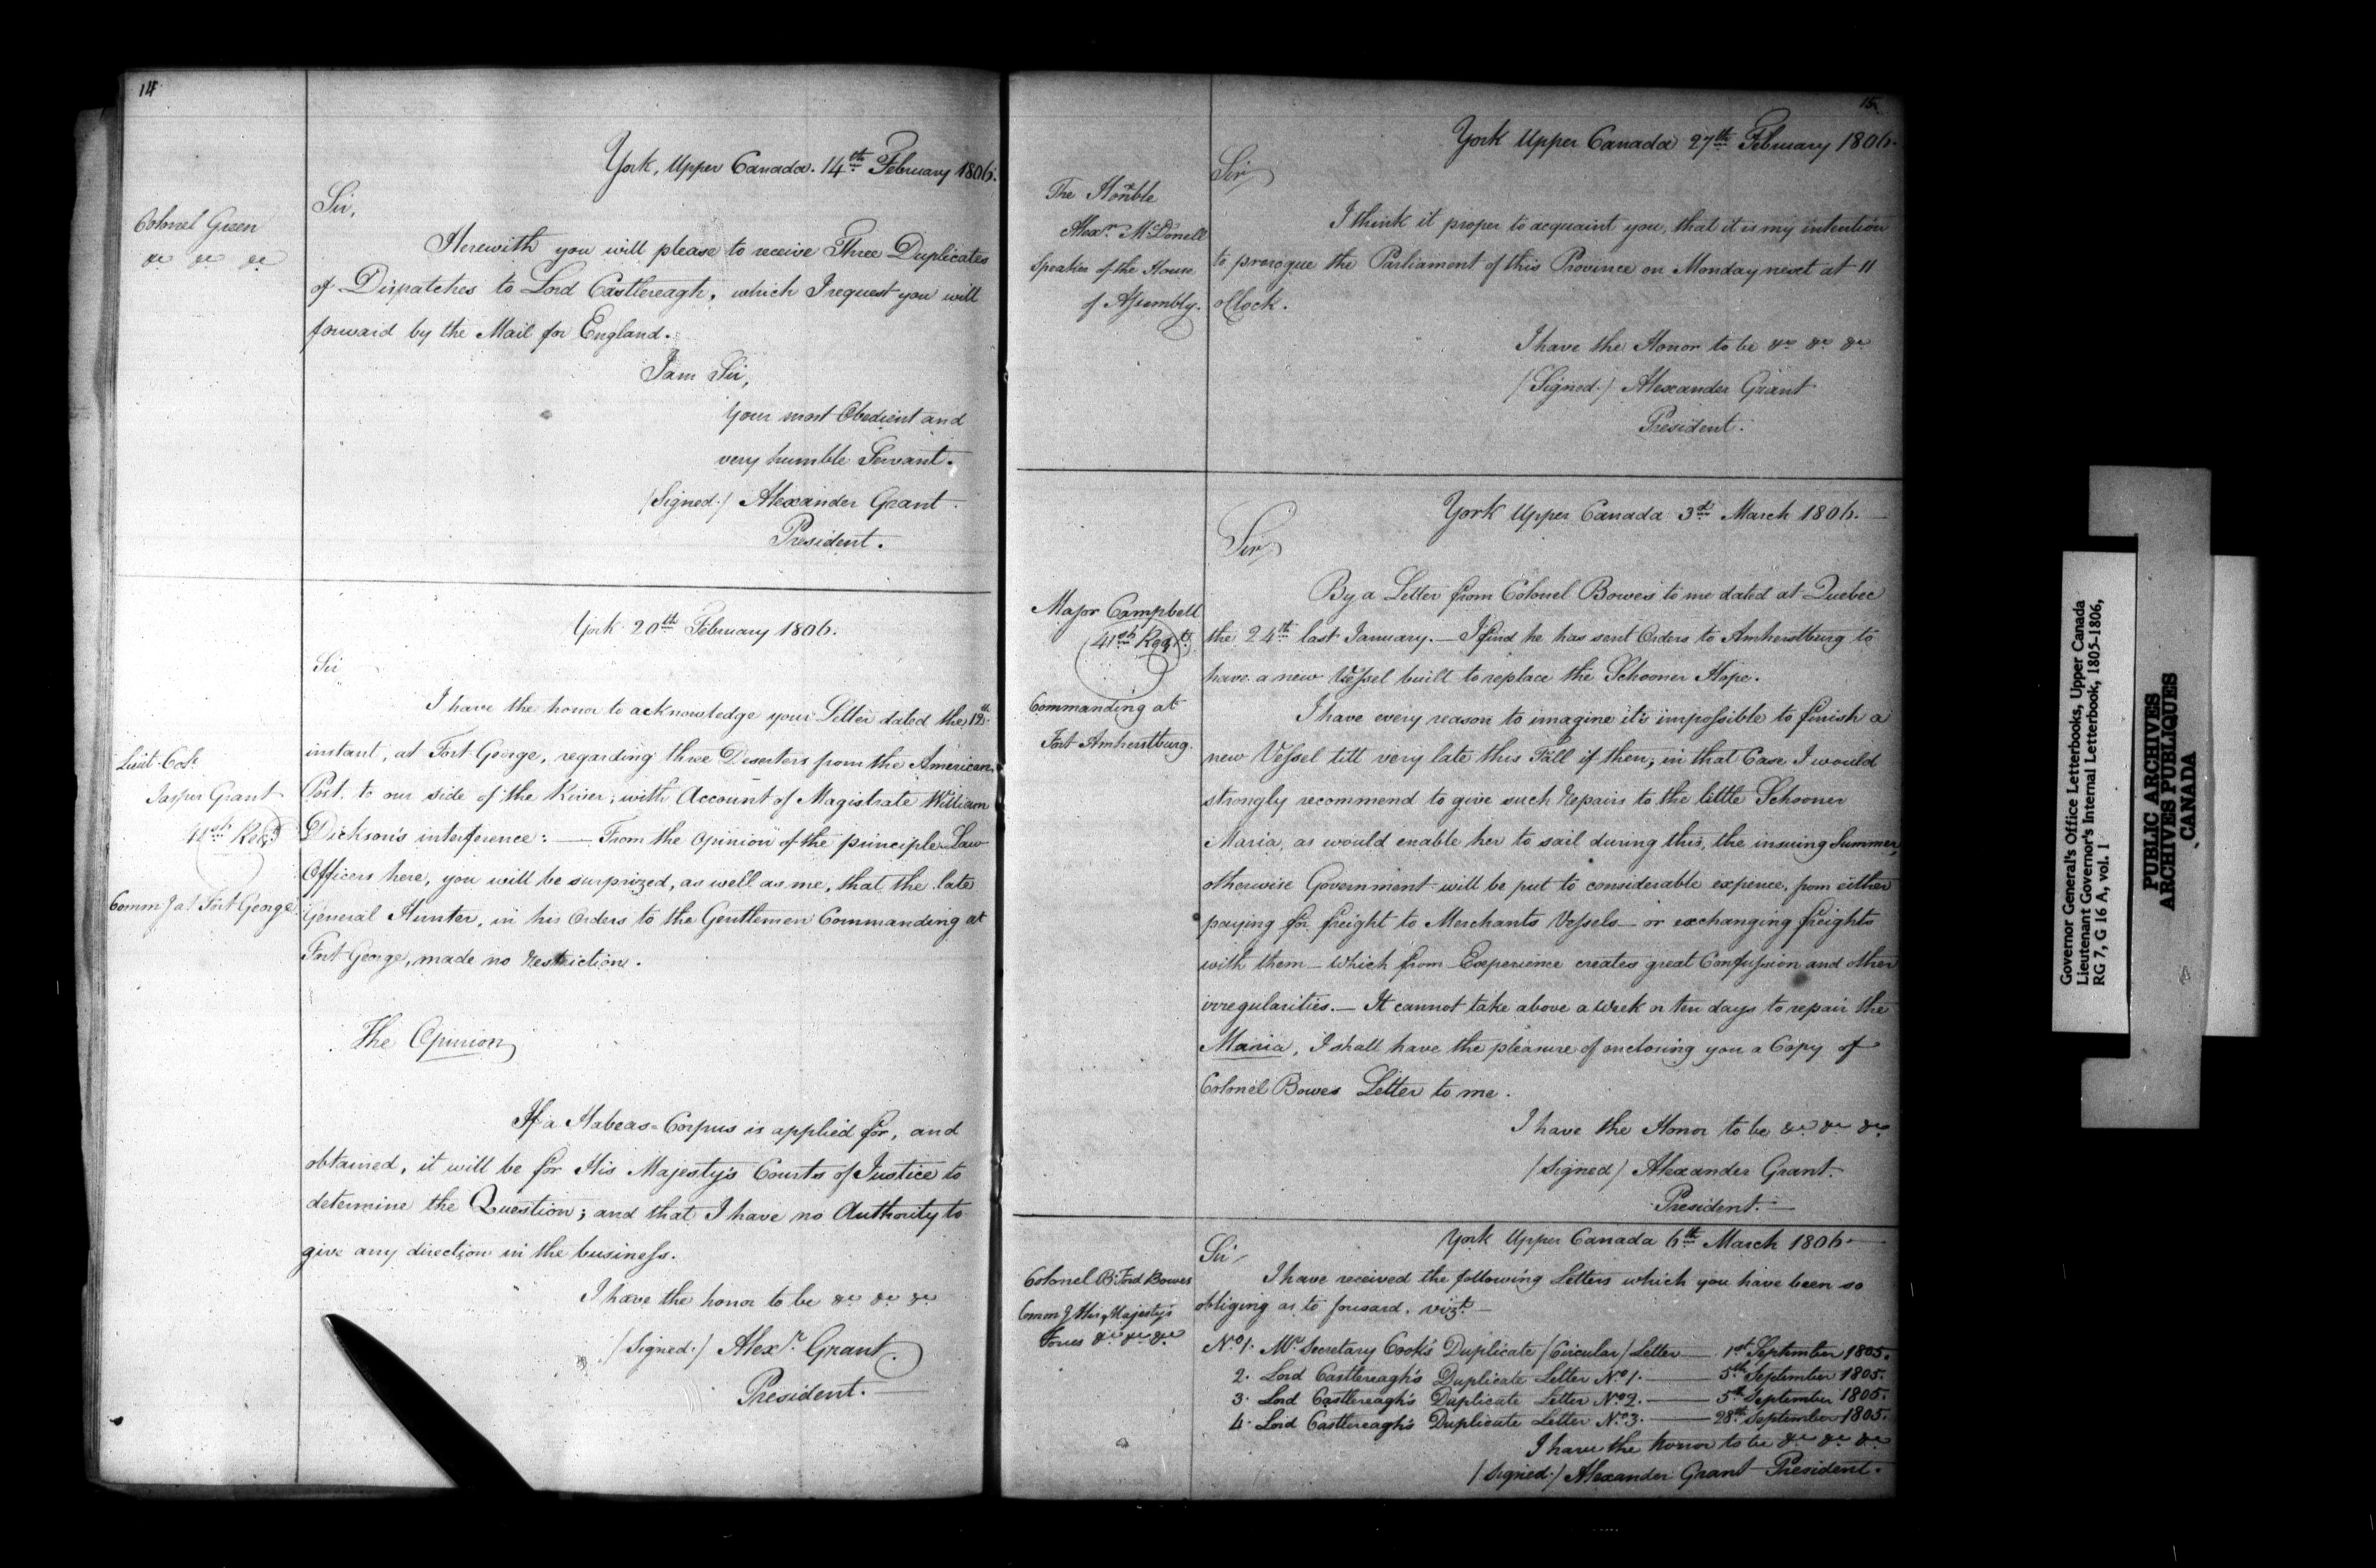 14
York, Upper Canada. 14th February 1806.
Colonel Green
&c &c &c
Sir,
Herewith you will please to receive Three Duplicates
of Dispatches to Lord Castlereagh, which I request you will
forward by the Mail for England.
I am Sir,
Your most Obedient and
very humble Servant.
/Signed./ Alexander Grant.
President.
York 20th February 1806.
Lieut. Col.
Jasper Grant
41st Regt
Commg at Fort George
Sir
I have the honor to acknowledge your Letter dated the
instant, at Fort George, regarding three Deserters from the American
Post. to our side of the River; with Account of Magistrate William
Dickson's interference: — From the Opinion of the principle Law
Officers here, you will be surprized, as well as me, that the late
General Hunter, in his Orders to the Gentlemen Commanding at
Fort George, made no Restriction.
The Opinion
If a Habeas-Corpus is applied for, and
obtained, it will be for His Majesty's Courts of Justice to
determine the Question; and that I have no Authority to
give any direction in the business.
I have the honor to be &c &c &c
/Signed./ Alexr Grant.
President.
15
York Upper Canada 27th February 1806.
The Honble
Alexr McDonell
Speaker of the House
of Assembly.
Sir
I think it proper to acquaint you, that it is my intention
to prorogue the Parliament of this Province on Monday next at 11
oClock.
I have the Honor to be &c &c &c
/Signed./ Alexander Grant
President.
York Upper Canada 3d March 1806.
Major Campbell
41st Regt.
Commanding at
Fort Amherstburg.
Sir
By a Letter from Colonel Bowes to me dated at Quebec
the 24th last January. — I find he has sent Orders to Amherstburg to
have a new Vessel built to replace the Schooner Hope.
I have every reason to imagine it's impossible to finish a
new Vessel till very late this Fall if then; in that Case I would
strongly recommend to give such Repairs to the little Schooner
Maria, as would enable her to sail during this, the insuing Summer,
otherwise Government will be put to considerable expence, from either
paying for freight to Merchants Vessels — or exchanging freights
with them — which from Experience creates great Confussion and other
irregularities. — It cannot take above a week or ten days to repair the
Maria, I shall have the pleasure of enclosing you a Copy of
Colonel Bowes Letter to me.
I have the Honor to be &c &c &c
/Signed/ Alexander Grant.
President.
York Upper Canada 6th March 1806.
Colonel B: Ford Bowes
Commg His Majesty's
Forces &c &c &c
Sir
I have received the following Letters which you have been so
obliging as to forward. vizt —
No 1. Mr Secretary Cook's Duplicate /Circular/ Letter — 1st September 1805.
2. Lord Castlereagh's Duplicate Letter No 1. — 5th September 1805.
3. Lord Castlereagh's Duplicate Letter No 2. — 5th September 1805.
4. Lord Castlereagh's Duplicate Letter No 3. — 28th September 1805.
I have the honor to be &c &c &c
/Signed./ Alexander Grant President.
Governor General's Office Letterbooks, Upper Canada
Lieutenant Governor's Internal Letterbook, 1805-1806,
RG 7, G 16 A, vol. 1
PUBLIC ARCHIVES
ARCHIVES PUBLIQUES
CANADA